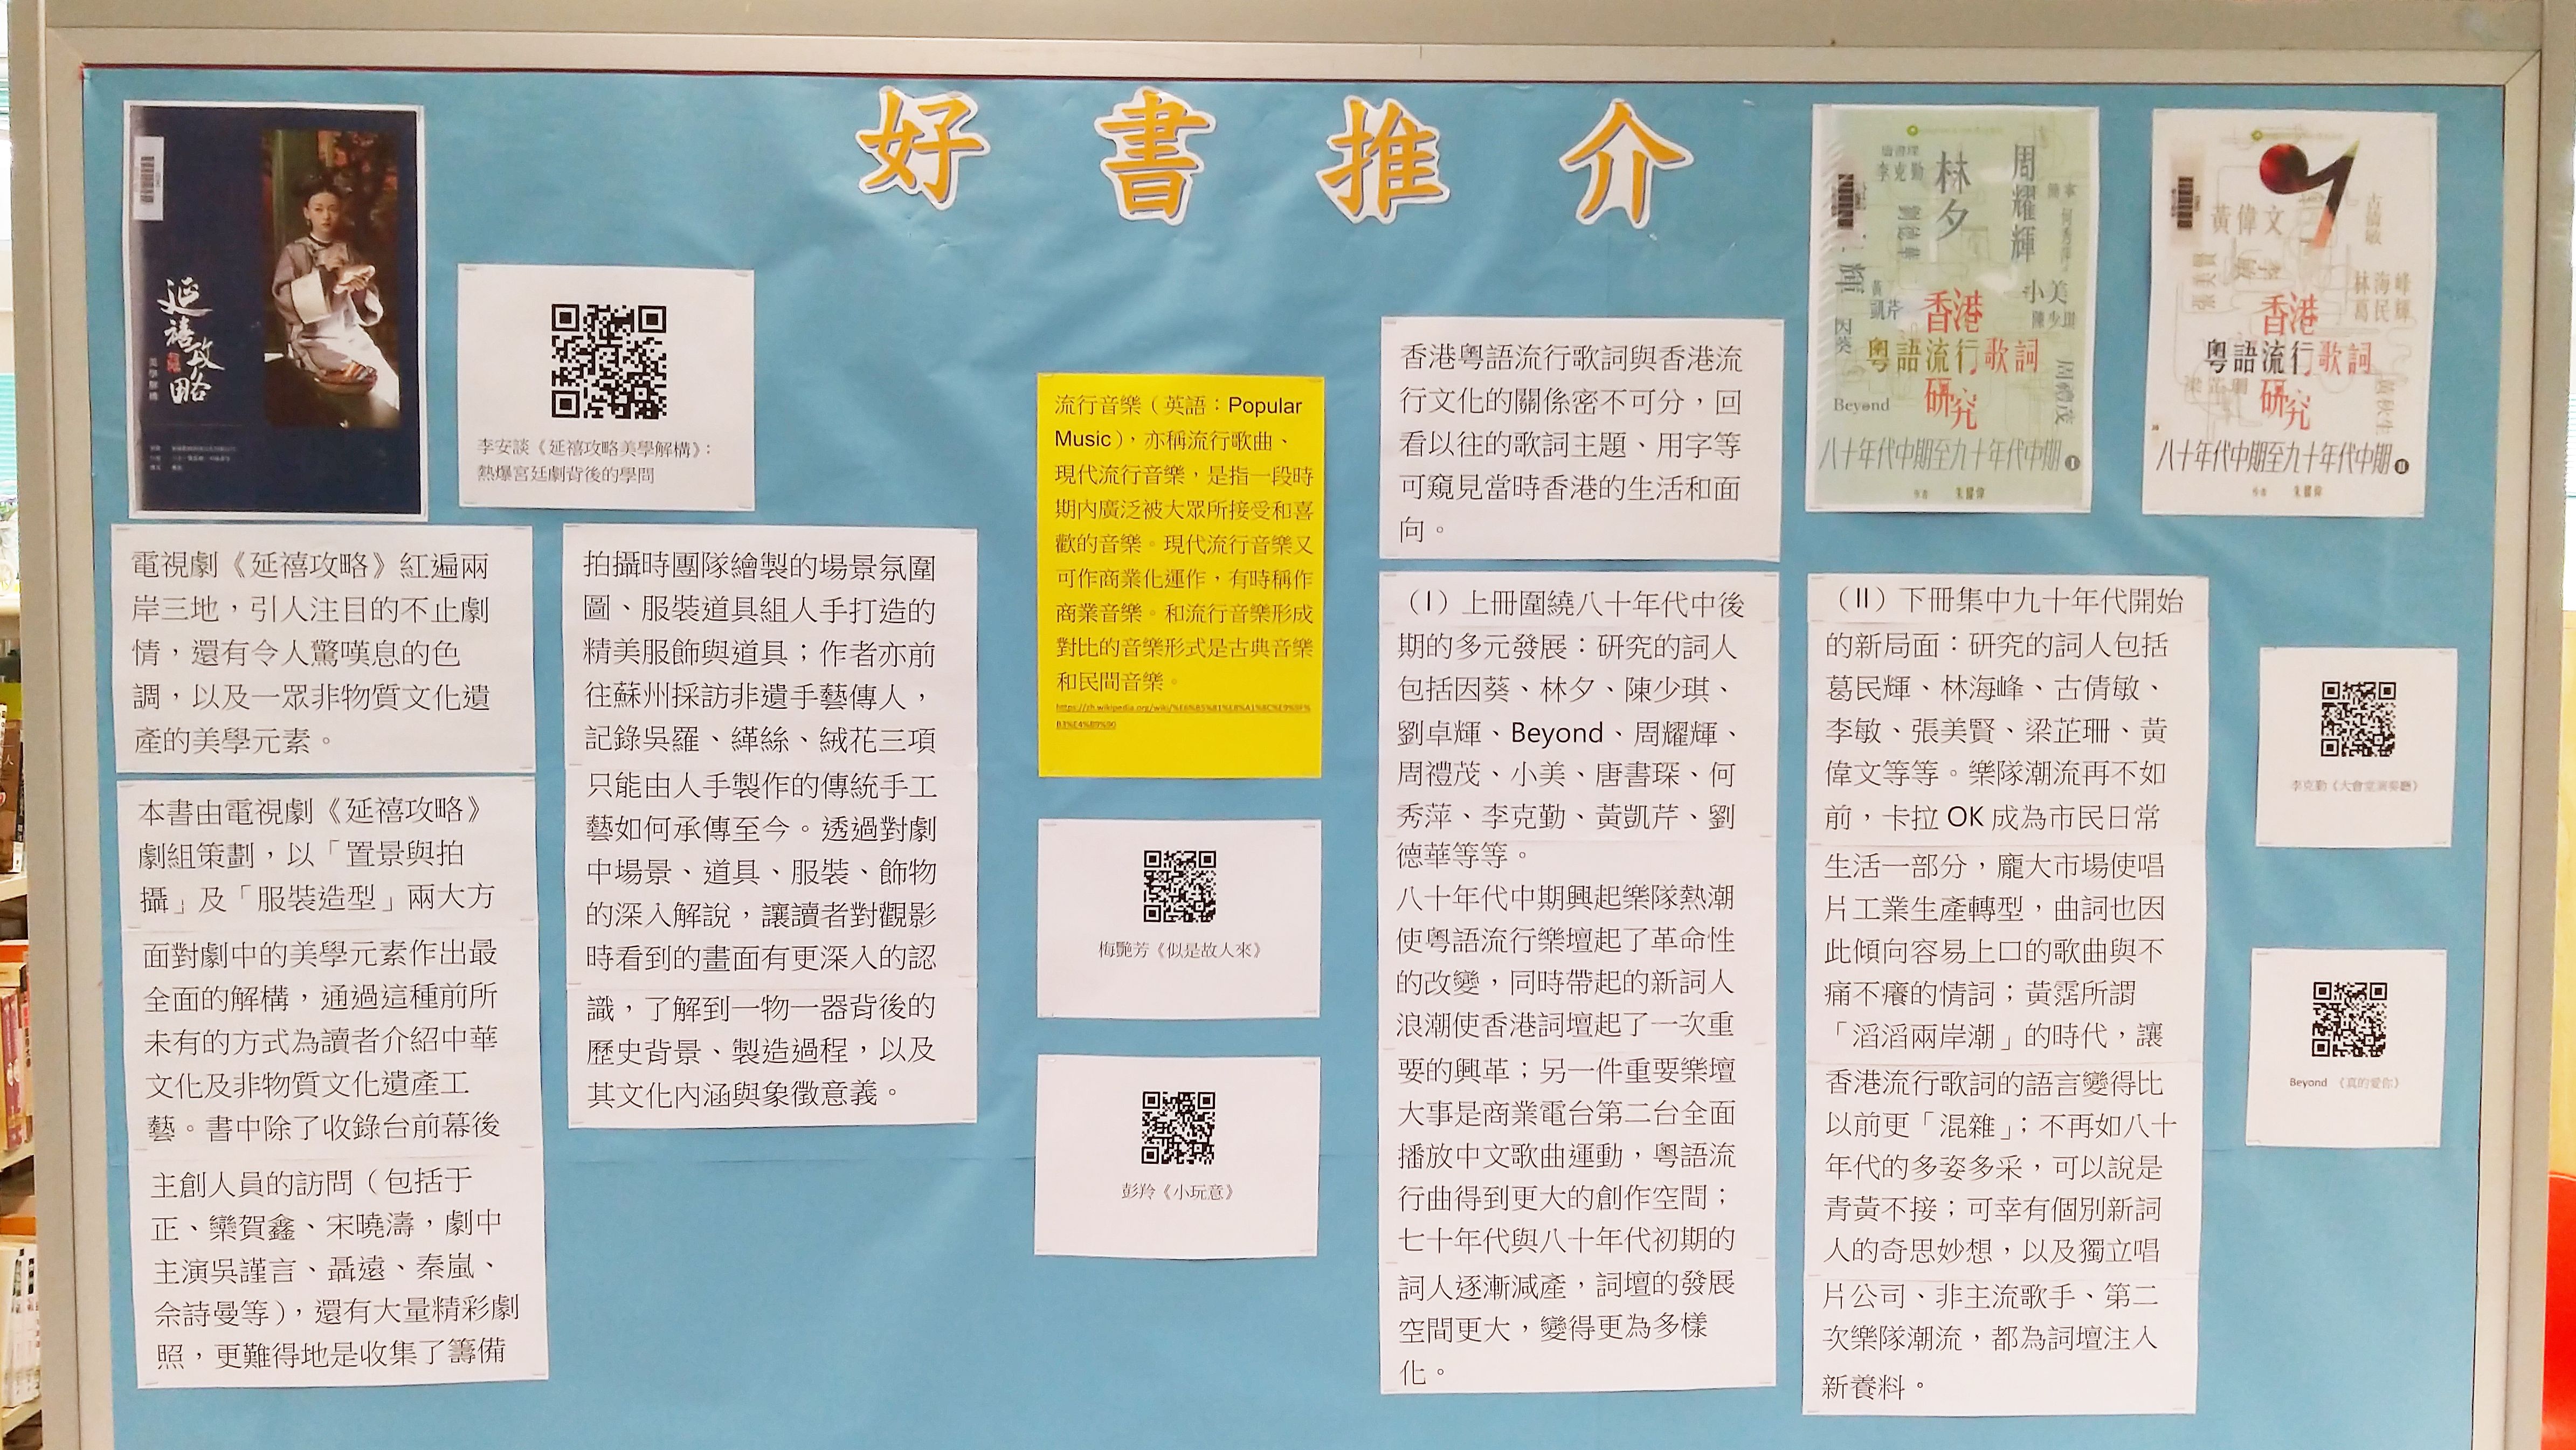 好書推介
延禧攻略
美學解構
李安談《延禧攻略美學解構》：
熱爆宮廷劇背後的學問
電視劇《延禧攻略》紅遍兩
岸三地，引人注目的不止劇
情，還有令人驚嘆息的色
調，以及一眾非物質文化遺
產的美學元素。
本書由電視劇《延禧攻略》
劇組策劃，以「置景與拍
攝」及「服裝造型」兩大方
面對劇中的美學元素作出最
全面的解構，通過這種前所
未有的方式為讀者介紹中華
文化及非物質文化遺產工
藝。書中除了收錄台前幕後
主創人員的訪問（包括于
正、欒賀鑫、宋曉濤，劇中
主演吳謹言、聶遠、秦嵐、
佘詩曼等），還有大量精彩劇
照，更難得地是收集了籌備
拍攝時團隊繪製的場景氛圍
圖、服裝道具組人手打造的
精美服飾與道具；作者亦前
往蘇州採訪非遺手藝傳人，
記錄吳羅、緙絲、絨花三項
只能由人手製作的傳統手工
藝如何承傳至今。透過對劇
中場景、道具、服裝、飾物
的深入解說，讓讀者對觀影
時看到的畫面有更深入的認
識，了解到一物一器背後的
歷史背景、製造過程，以及
其文化內涵與象徵意義。
流行音樂（英語：Popular
Music），亦稱流行歌曲、
現代流行音樂，是指一段時
期內廣泛被大眾所接受和喜
歡的音樂。現代流行音樂又
可作商業化運作，有時稱作
商業音樂。和流行音樂形成
對比的音樂形式是古典音樂
和民間音樂。
https://zh.wikipedia.org/wiki/%E6%B5%81%E8%A1%8C%E9%9F%
B3%E4%B9%90
梅艷芳《似是故人來》
彭羚《小玩意》
香港粵語流行歌詞與香港流
行文化的關係密不可分，回
看以往的歌詞主題、用字等
可窺見當時香港的生活和面
向。
（I）上冊圍繞八十年代中後
期的多元發展：研究的詞人
包括因葵、林夕、陳少琪、
劉卓輝、Beyond、周耀輝、
周禮茂、小美、唐書琛、何
秀萍、李克勤、黃凱芹、劉
德華等等。
八十年代中期興起樂隊熱潮
使粵語流行樂壇起了革命性
的改變，同時帶起的新詞人
浪潮使香港詞壇起了一次重
要的興革；另一件重要樂壇
大事是商業電台第二台全面
播放中文歌曲運動，粵語流
行曲得到更大的創作空間；
七十年代與八十年代初期的
詞人逐漸減產，詞壇的發展
空間更大，變得更為多樣
化。
唐書琛
李克勤
林夕
周耀輝
劉德華
黃凱芹
小美
陳少琪
因葵
周禮茂
Beyond
香港
粵語流行歌詞
研究
八十年代中期至九十年代中期 I
作者 朱耀偉
黃偉文
古倩敏
張美賢
林海峰
葛民輝
梁芷珊
香港
粵語流行歌詞
研究
八十年代中期至九十年代中期 II
作者 朱耀偉
（II）下冊集中九十年代開始
的新局面：研究的詞人包括
葛民輝、林海峰、古倩敏、
李敏、張美賢、梁芷珊、黃
偉文等等。樂隊潮流再不如
前，卡拉 OK 成為市民日常
生活一部分，龐大市場使唱
片工業生產轉型，曲詞也因
此傾向容易上口的歌曲與不
痛不癢的情詞；黃霑所謂
「滔滔兩岸潮」的時代，讓
香港流行歌詞的語言變得比
以前更「混雜」；不再如八十
年代的多姿多采，可以說是
青黃不接；可幸有個別新詞
人的奇思妙想，以及獨立唱
片公司、非主流歌手、第二
次樂隊潮流，都為詞壇注入
新養料。
李克勤《大會堂演奏廳》
Beyond 《真的愛你》